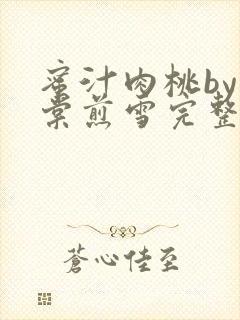 蜜汁肉桃by
棠煎雪完整
蒼心佳至